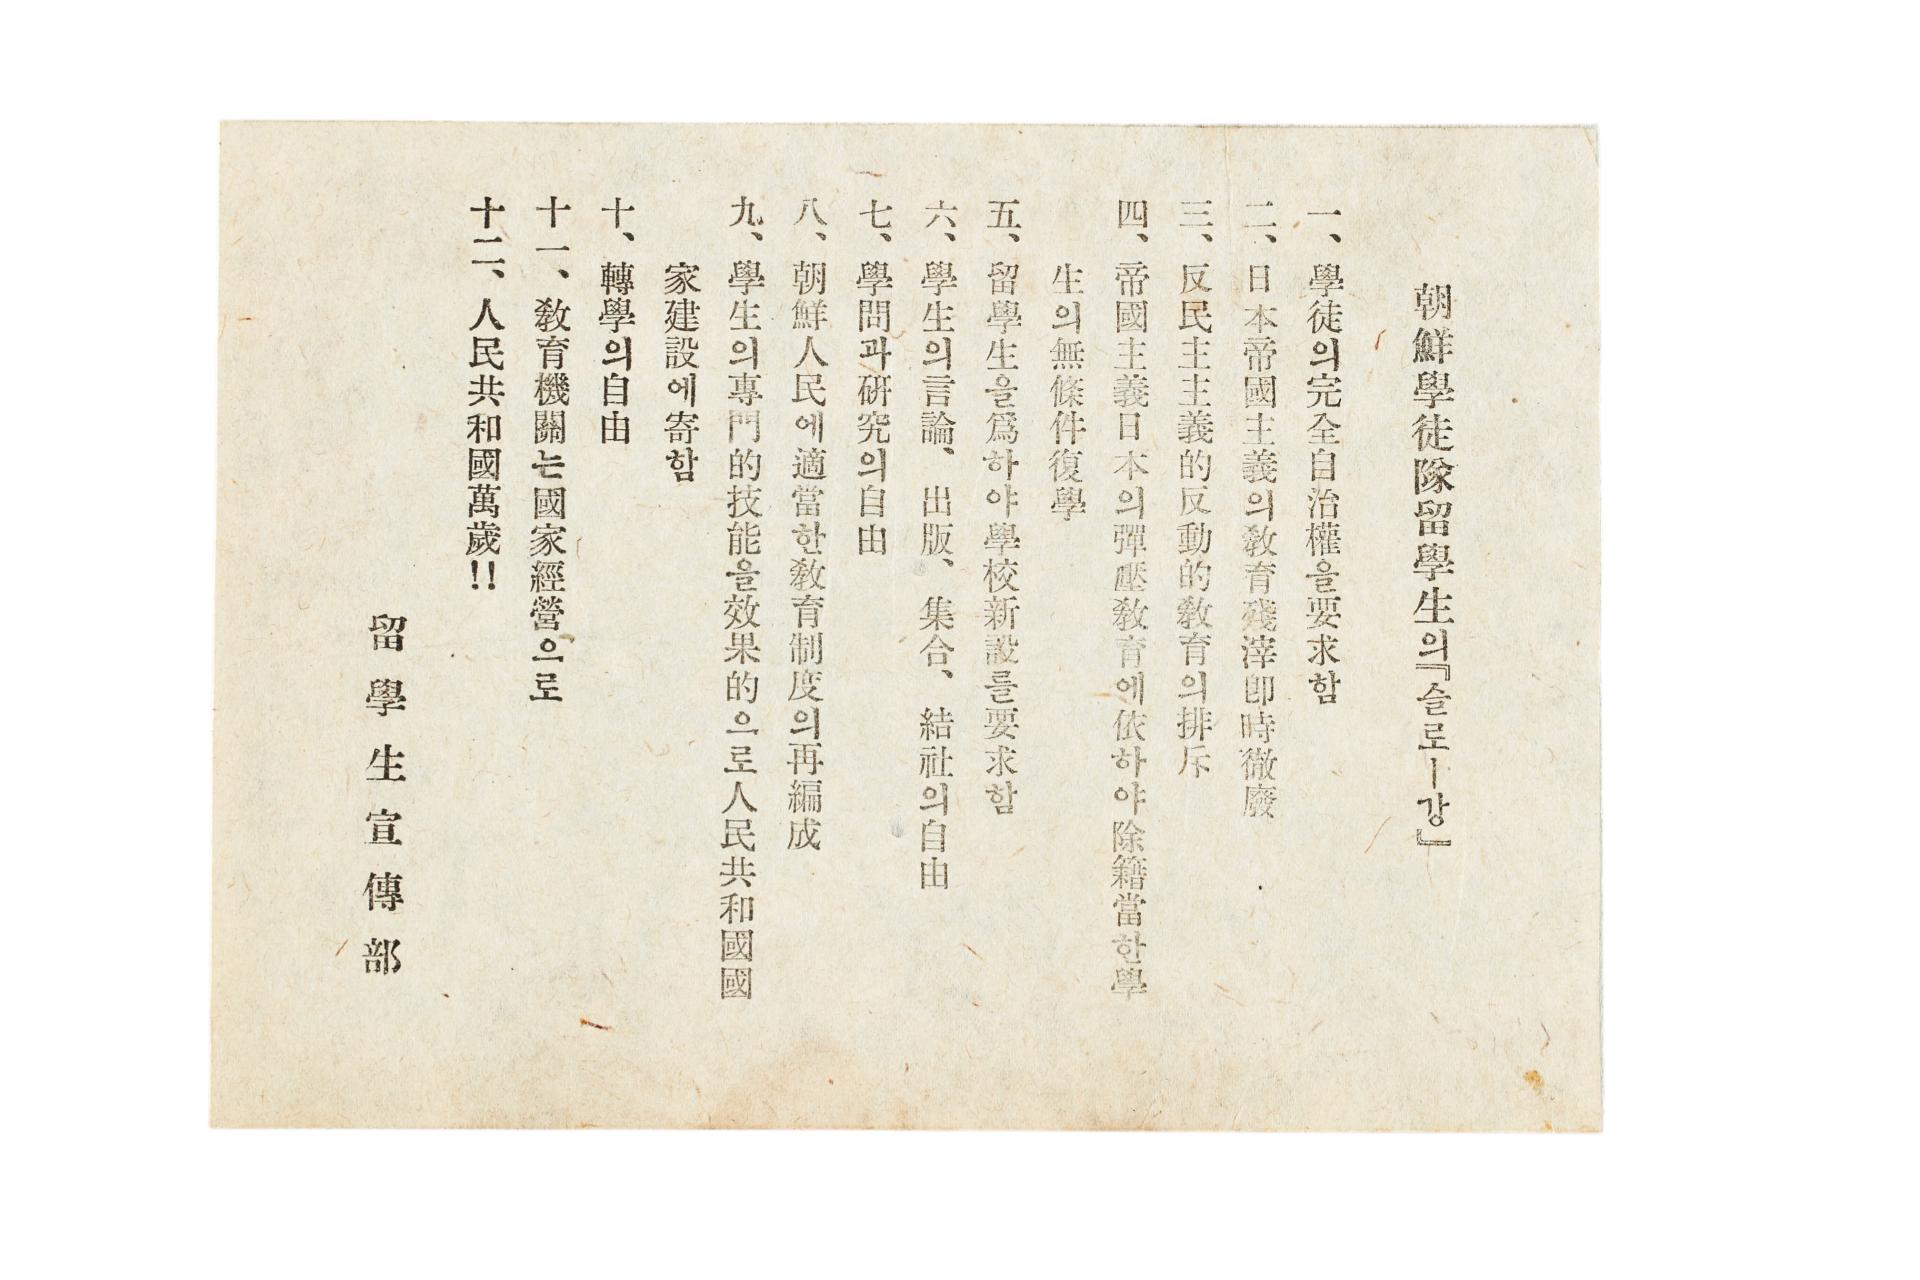 朝鮮學徒隊留學生의『슬로ー강』
一、學徒의完全自治權을要求함
二、日本帝國主義의敎育殘滓卽時徹廢
三、反民主主義的反動的敎育의排斥
四、帝國主義日本의彈壓敎育에依하야除籍當한學
生의無條件復學
五、留學生을爲하야學校新設를要求함
六、學生의言論、出版、集合、結社의自由
七、學問과硏究의自由
八、朝鮮人民에適當한敎育制度의再編成
九、學生의專門的技能을效果的으로人民共和國國
家建設에寄함
十、轉學의自由
十一、敎育機關는國家經營으로
十二、人民共和國萬歲!!
留學生宣傳部